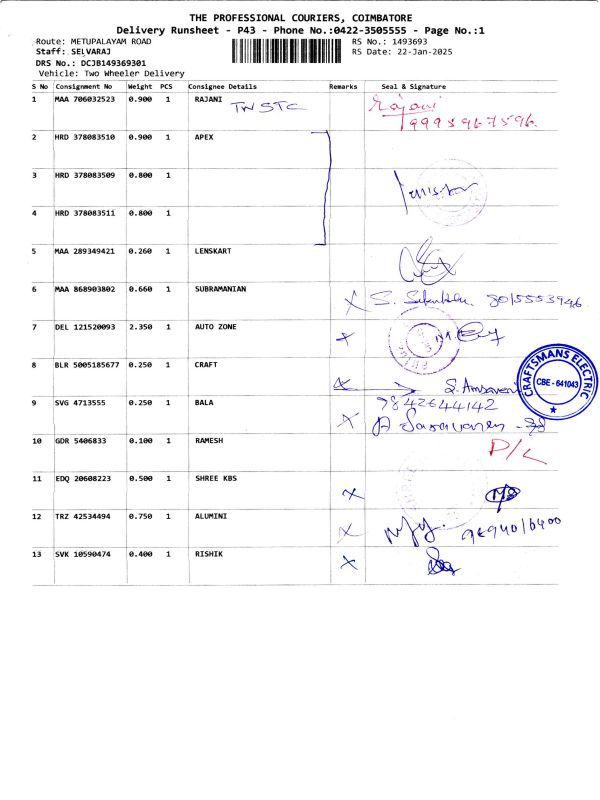 THE PROFESSIONAL COURIERS, COIMBATORE
Delivery Runsheet - P43 - Phone No.:0422-3505555 - Page No.:1
Route: METUPALAYAM ROAD RS No.: 1493693
Staff: SELVARAJ RS Date: 22-Jan-2025
DRS No.: DCJB149369301
Vehicle: Two Wheeler Delivery
S No Consignment No Weight PCS Consignee Details Remarks Seal & Signature
1 MAA 706032523 0.900 1 RAJANI TNSTC Rajani
9993967596
2 HRD 378083510 0.900 1 APEX
3 HRD 378083509 0.800 1
4 HRD 378083511 0.800 1
5 MAA 289349421 0.260 1 LENSKART
6 MAA 868903802 0.660 1 SUBRAMANIAN X S. 8015553946
7 DEL 121520093 2.350 1 AUTO ZONE X
8 BLR 5005185677 0.250 1 CRAFT X
CRAFTSMANS ELECTRIC
CBE - 641043
9 SVG 4713555 0.250 1 BALA X 9842644142
10 GDR 5406833 0.100 1 RAMESH P/L
11 EDQ 20608223 0.500 1 SHREE KBS X
12 TRZ 42534494 0.750 1 ALUMINI X
13 SVK 10590474 0.400 1 RISHIK X